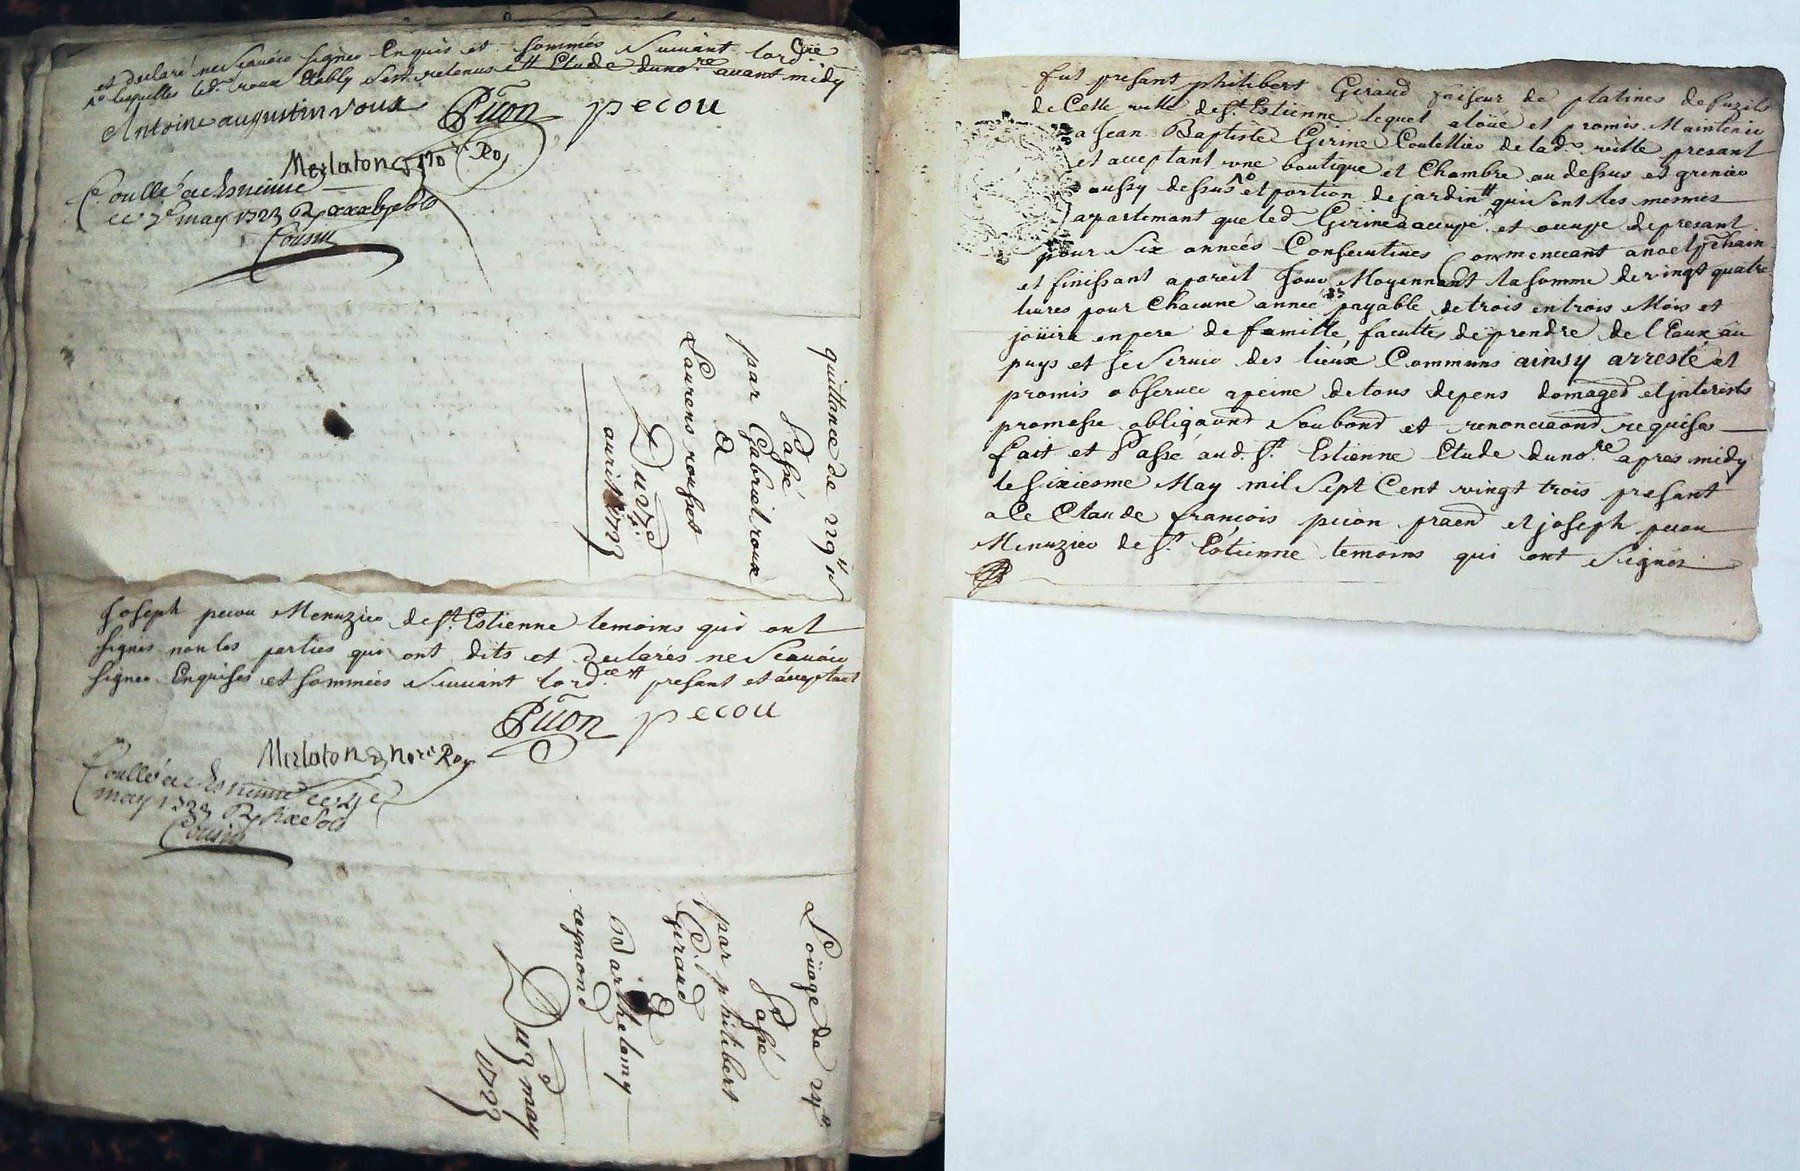 et declaré ne scavoir signer Enquis et sommés Suivant lord.ce
lesquelles led. roux Estably sera retenus Etude du no.re avant midy
Antoine augustin roux Picon pecou
Merlaton No.re Roy
Coullé a St estienne
ce 7e may 1723 R
Cousin
quittance de 229lt
Passé
par Gabriel roux
a
Laurens rousset
Du 27e
avril 1723
Joseph pecou Menuzier de St. Estienne temoins qui ont
signes non les parties qui ont dits et declarés ne scavoir
signer Enquises et sommées Suivant lord.ce presant et acceptant
Picon pecou
Merlaton no.re Roy
Coullé a St estienne ce
may 1723 R
Cousin
Loüage de 24lt
Passé
par philibert
Giraud
a
Barthelemy
reymond
Du 3 may
1723
fut presant philibert Giraud faiseur de platines de fuzils
de Cette ville de St Estienne lequel a loüé et promis Maintenir
a Jean Baptiste Girine Coutellier de lad. ville presant
et acceptant une boutique et Chambre au dessus et grenier
aussy dessus et portion de jardin qui sont les mesmes
apartemant que led Girine a occupé et occupe de presant
pour six années Consecutives Commenceant a noel prochain
et finissant a pareil Jour Moyennant la somme de vingt quatre
livres pour Chacune année payable de trois en trois Mois et
joüira en pere de famille, faculté de prendre de l Eaux au
puys et se servir des lieux Communs ainsy arresté et
promis observer a peine de tous depens domages et jnterests
promesse obliga͠ond soubond et renoncia͠ond requises
fait et Passé aud. St. Estienne Etude du no.re apres midy
le sixiesme May mil sept Cent vingt trois presant
a Ce Claude françois picon pra͠en et joseph pecou
Menuzier de St. Estienne temoins qui ont signés